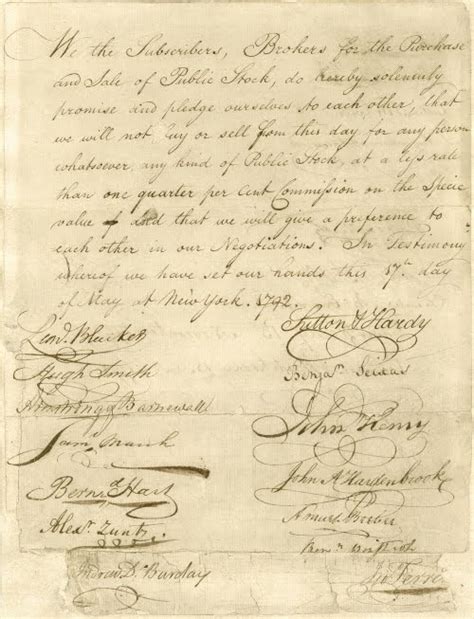 We the Subscribers, Brokers for the Purchase
and Sale of Public Stock, do hereby solemnly
promise and pledge ourselves to each other, that
we will not buy or sell from this day for any person
whatsoever, any kind of Public Stock, at a less rate
than one quarter per Cent Commission on the Specie
value of and that we will give a preference to
each other in our Negotiations. In Testimony
whereof we have set our hands this 17th day
of May at New York. 1792.
Leod. Bleecker
Hugh Smith
Armstrong & Barnewall
Saml. March
Bernd. Hart
Alexr. Zuntz
Andrew D. Barclay
Sutton & Hardy
Benjn. Seixas
John Henry
John A Hardenbrook
Amart Beebee